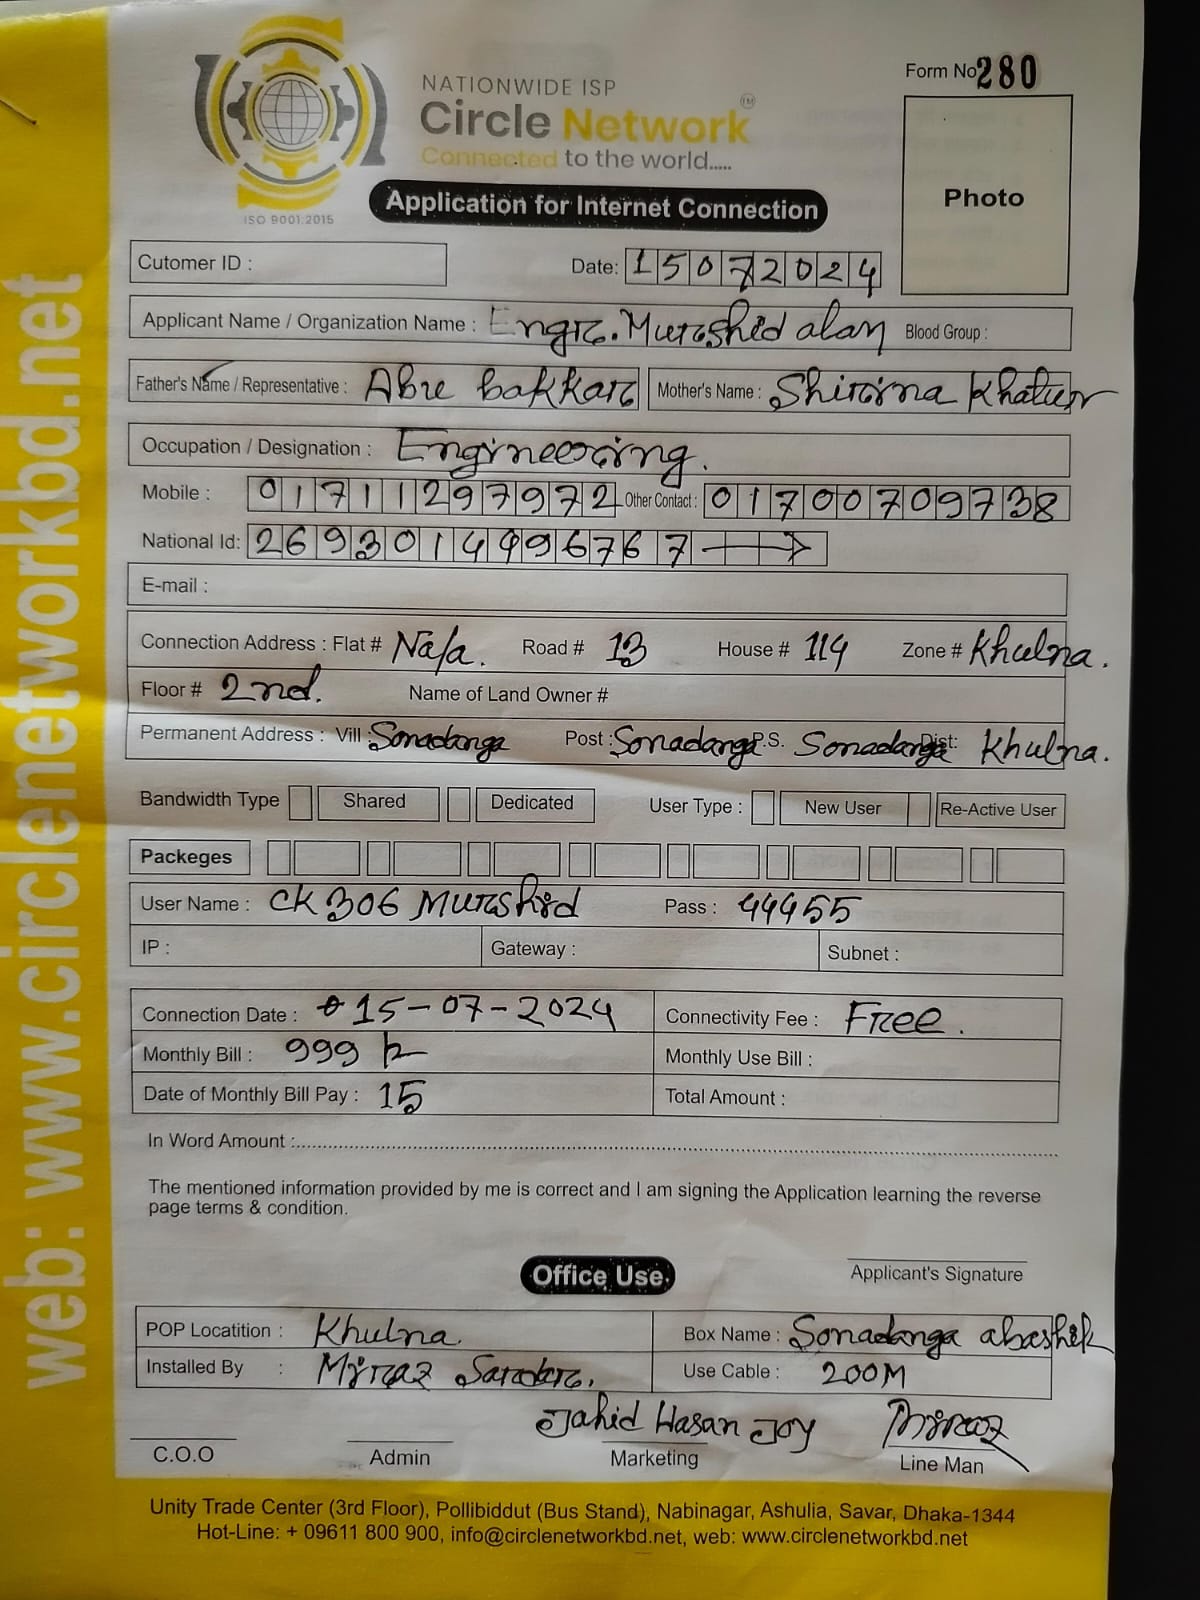 Form No 280
NATIONWIDE ISP
Circle Network TM
Connected to the world.....
ISO 9001:2015
Photo
Application for Internet Connection
Cutomer ID :
Date: 15072024
Applicant Name / Organization Name : Engr. Murshid alam Blood Group :
Father's Name / Representative : Abu bakkar Mother's Name : Shirina Khatun
Occupation / Designation : Engineering.
Mobile : 01711297972 Other Contact : 01700709738
National Id: 2693014996767
E-mail :
Connection Address : Flat # Na/a. Road # 13 House # 114 Zone # Khulna.
Floor # 2nd. Name of Land Owner #
Permanent Address : Vill : Sonadanga Post : Sonadanga P.S. Sonadanga Dist: Khulna.
Bandwidth Type Shared Dedicated User Type : New User Re-Active User
Packeges
User Name : CK306 Murshid Pass : 44455
IP : Gateway : Subnet :
Connection Date : 15-07-2024 Connectivity Fee : Free.
Monthly Bill : 999 Monthly Use Bill :
Date of Monthly Bill Pay : 15 Total Amount :
In Word Amount :
The mentioned information provided by me is correct and I am signing the Application learning the reverse
page terms & condition.
Office Use.
Applicant's Signature
POP Locatition : Khulna Box Name : Sonadanga abashik
Installed By : Miraz Sardar. Use Cable : 200M
Jahid Hasan Joy Miraz
C.O.O Admin Marketing Line Man
Unity Trade Center (3rd Floor), Pollibiddut (Bus Stand), Nabinagar, Ashulia, Savar, Dhaka-1344
Hot-Line: + 09611 800 900, info@circlenetworkbd.net, web: www.circlenetworkbd.net
web: www.circlenetworkbd.net